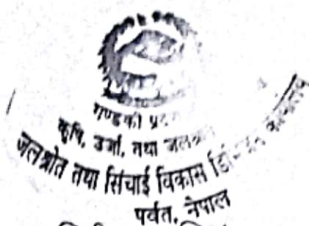 गण्डकी प्रदे
कृषि, उर्जा, तथा जलस्रो
जलश्रोत तथा सिंचाई विकास डिभिजन कार्यालय
पर्वत, नेपाल